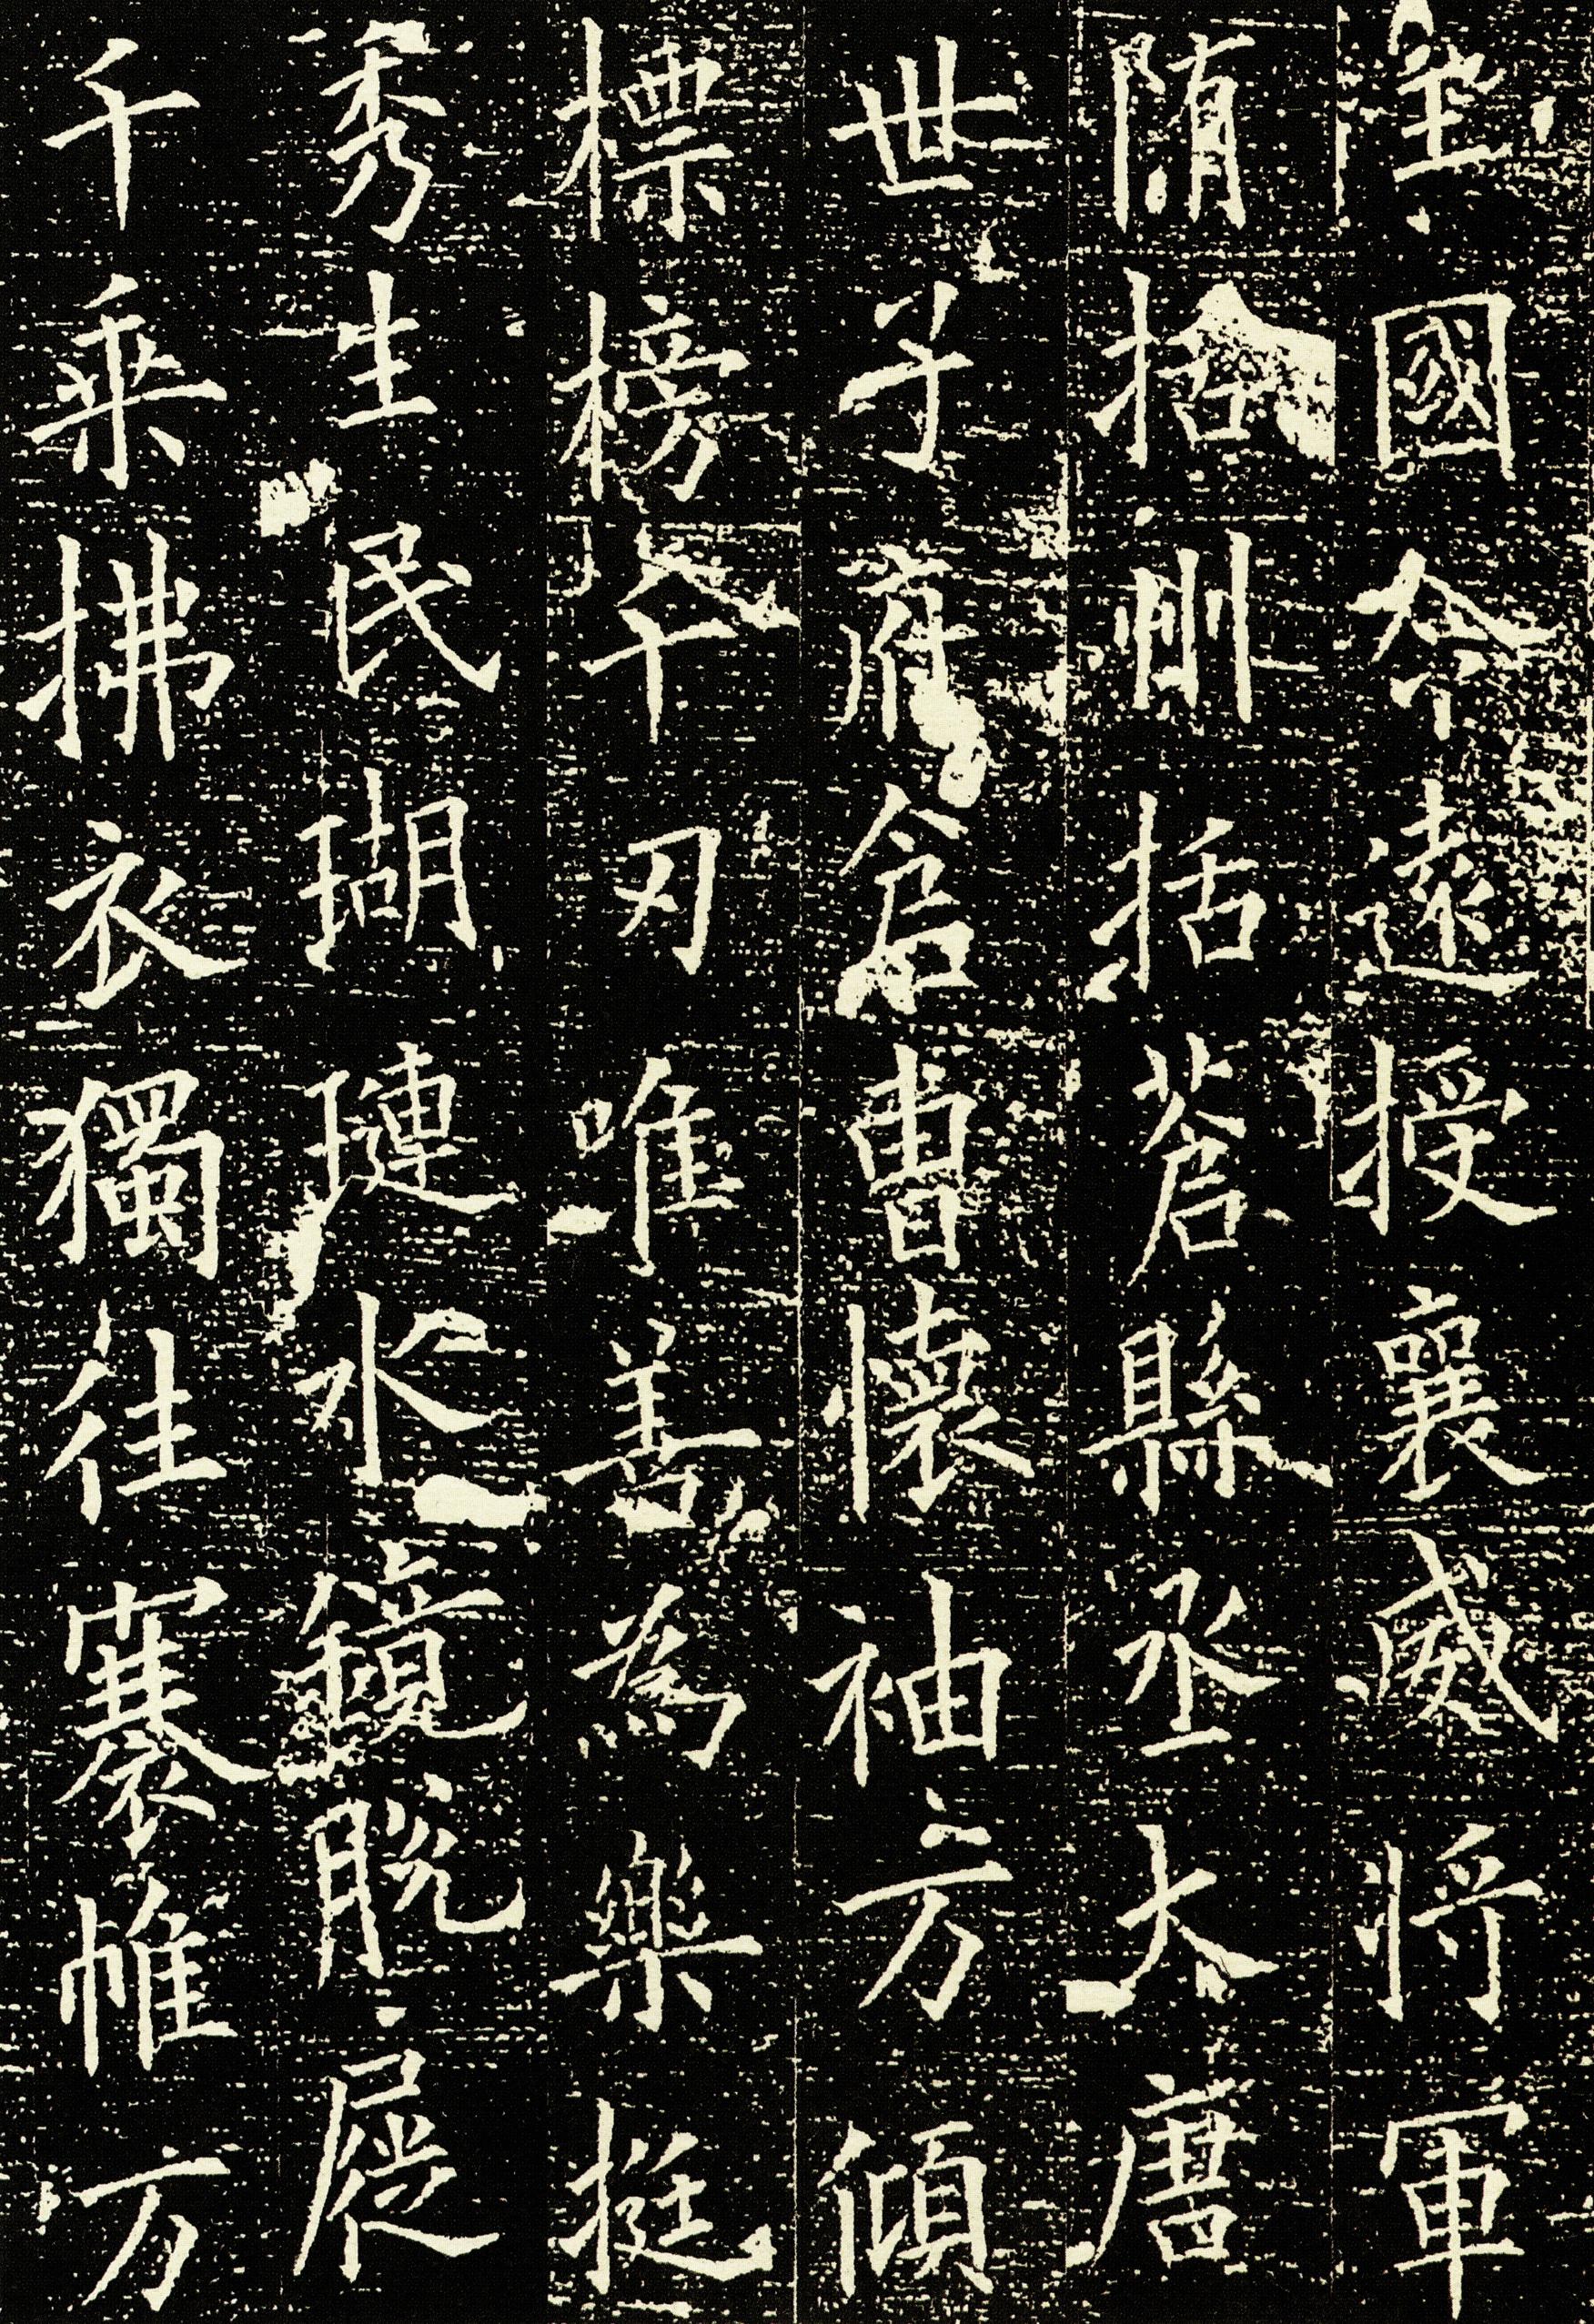 國令遠授襄威將軍
陏括州括蒼縣丞大唐
世子府倉曹懷袖方傾
標榜千刃唯善為樂挺
秀生民瑚璉水鏡脫屣
千乘拂衣獨往褰帷方